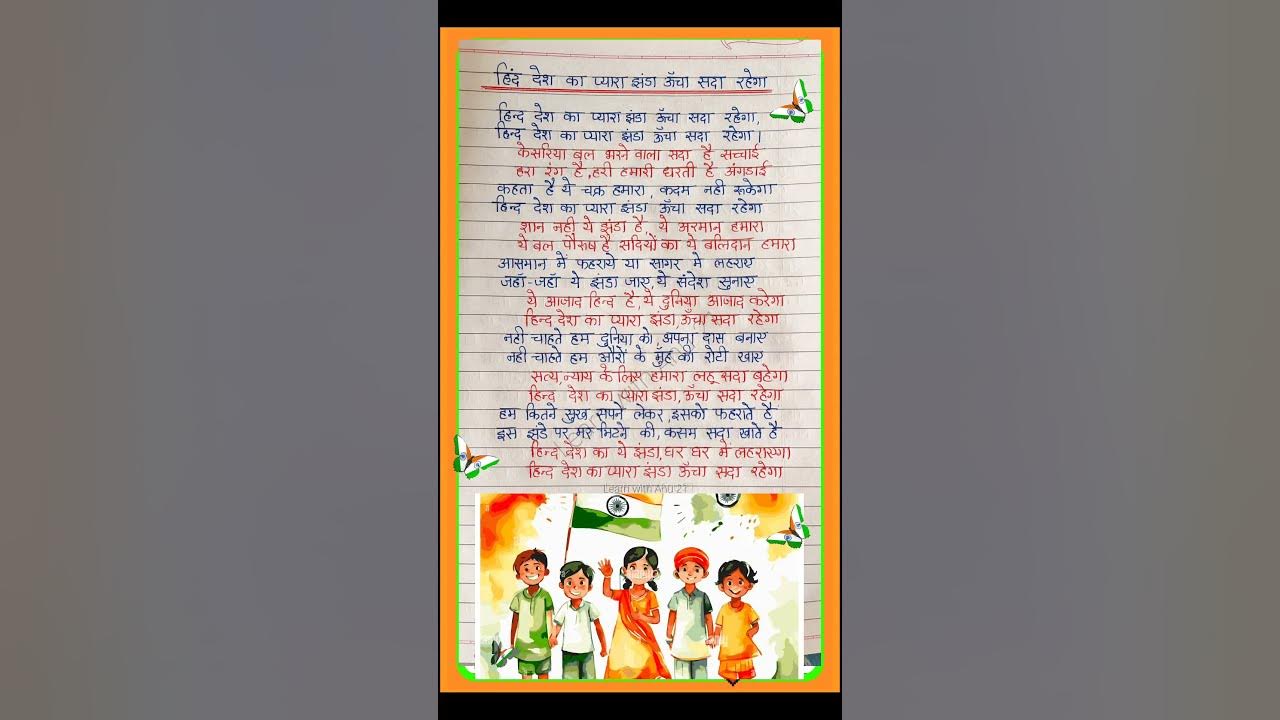 हिंद देश का प्यारा झंडा ऊँचा सदा रहेगा
हिन्द देश का प्यारा झंडा ऊँचा सदा रहेगा,
हिन्द देश का प्यारा झंडा ऊँचा सदा रहेगा।
केसरिया बल भरने वाला सदा है सच्चाई
हरा रंग है,हरी हमारी धरती है अंगडाई
कहता है ये चक्र हमारा, कदम नही रुकेगा
हिन्द देश का प्यारा झंडा ऊँचा सदा रहेगा
शान नही ये झंडा है, ये अरमान हमारा
ये बल पौरुष है सदियों का ये बलिदान हमारा
आसमान में फहराये या सागर मे लहराए
जहाँ-जहाँ ये झंडा जाए,ये संदेश सुनाए
ये आजाद हिन्द है,ये दुनिया आजाद करेगा
हिन्द देश का प्यारा झंडा,ऊँचा सदा रहेगा
नही चाहते हम दुनिया को,अपना दास बनाए
नही चाहते हम औरों के मुँह की रोटी खाए
सत्य,न्याय के लिए हमारा लहू सदा बहेगा
हिन्द देश का प्यारा झंडा,ऊँचा सदा रहेगा
हम कितने सुख सपने लेकर,इसको फहराते है
इस झंडे पर मर मिटने की,कसम सदा खाते है
हिन्द देश का ये झंडा,घर घर में लहराएगा
हिन्द देश का प्यारा झंडा ऊँचा सदा रहेगा
Learn with Anu 21